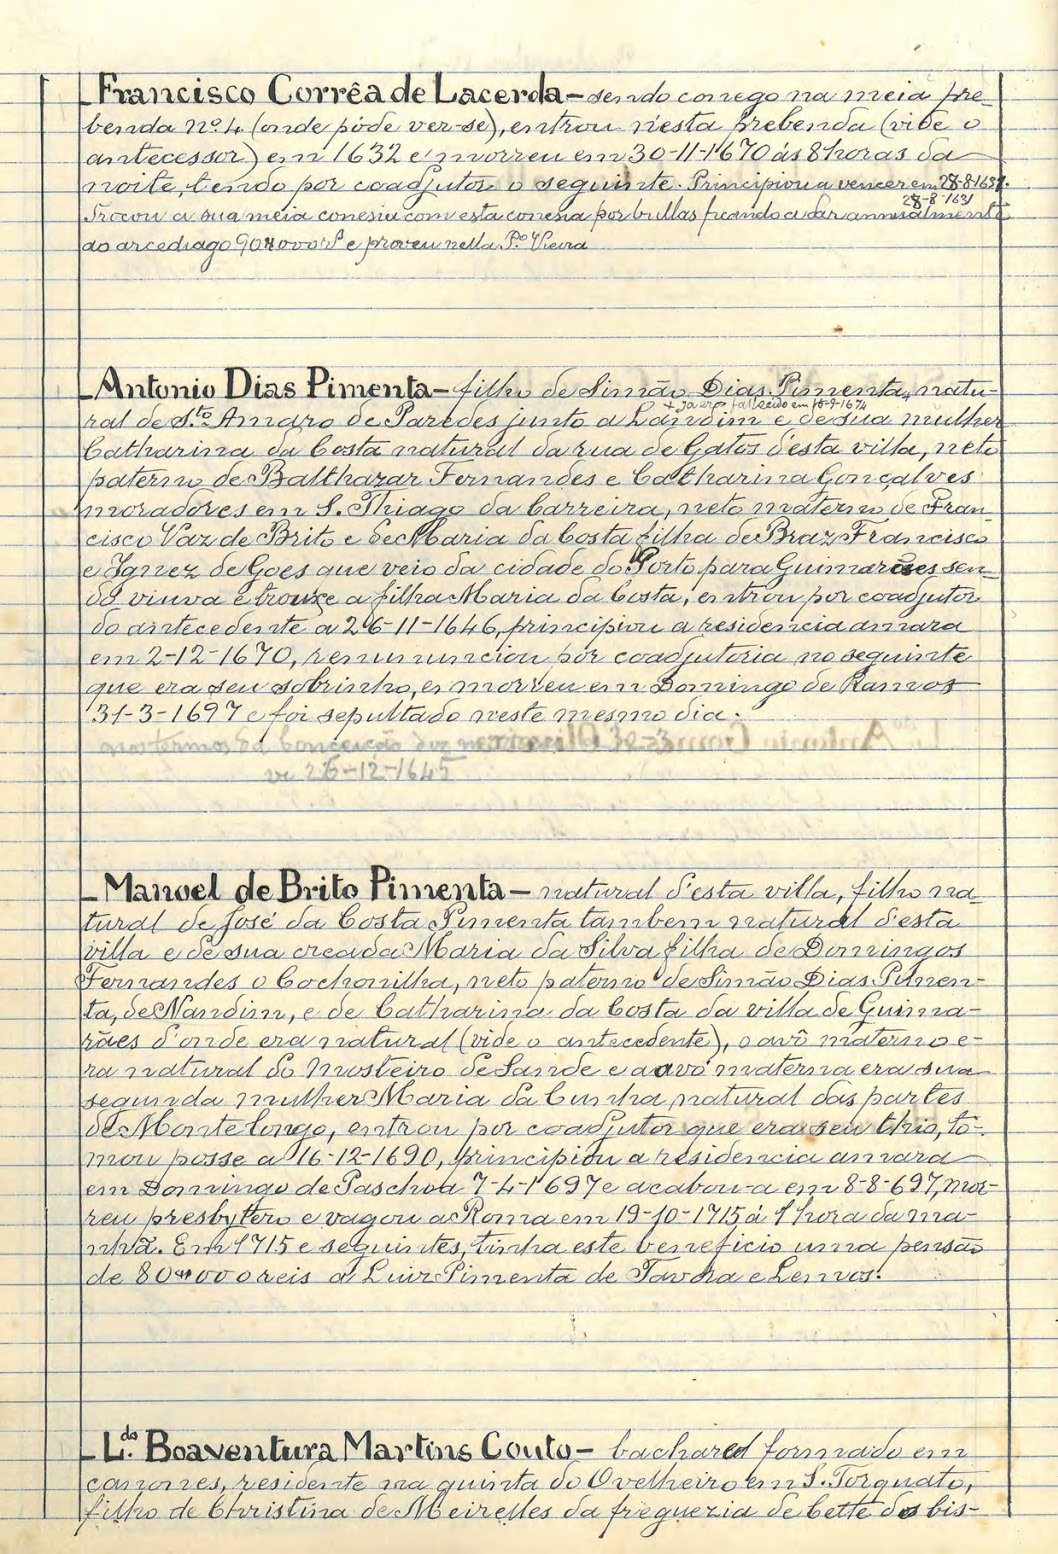 Francisco Corrêa de Lacerda – sendo conego na meia pre-
benda nº 4 (onde póde ver-se), entrou n'esta prebenda (vide o
antecessor) em 1632 e morreu em 30-11-1670 ás 8 horas da
noite, tendo por coadjutor o seguinte. Principiou a vencer em 28-8-1631.
28-8-1631
Trocou a sua meia conesia com esta conesia por bullas ficando a dar annualmente
ao arcediago 90#000 rs e proveu nella P.º Vieira
Antonio Dias Pimenta – filho de Simão Dias Pimenta, natu-
+ já era fallecido em 18-9-1674
ral de S.to Amaro de Paredes junto a Landim e de sua mulher
Catharina da Costa natural da rua de Gatos d'esta villa, neto
paterno de Balthazar Fernandes e Catharina Gonçalves
moradores em S. Thiago da Carreira, neto materno de Fran-
cisco Vaz de Brito e de Maria da Costa filha de Braz Francisco
e Ignez de Goes que veio da cidade do Porto para Guimarães sen-
do viuva e trouxe a filha Maria da Costa, entrou por coadjutor
do antecedente a 26-11-1646, principiou a residencia amara
em 2-12-1670, renununciou por coadjutoria no seguinte
que era seu sobrinho, e morreu em Domingo de Ramos
31-3-1697 e foi sepultado neste mesmo dia.
nos termos da Conceição dos
26-12-1645
Manoel de Brito Pimenta – natural d'esta villa, filho na-
tural de José da Costa Pimenta tambem natural d'esta
villa e de sua creada Maria da Silva filha de Domingos
Fernandes o Cochonilha, neto paterno de Simão Dias Pimen-
ta, de Nandim, e de Catharina da Costa da villa de Guima-
rães d'onde era natural (vide o antecedente), o avô materno e-
ra natural do Mosteiro de Sande e a avó materna era sua
segunda mulher Maria da Cunha natural das partes
de Montelongo, entrou por coadjutor que era seu thio, to-
mou posse a 16-12-1690, principiou a residencia amara
em Domingo de Paschoa 7-4-1697 e acabou-a em 8-8-697, mor-
reu presbytero e vagou a Roma em 19-10-1715 á 1 hora da ma-
nhã. Em 1715 e seguintes, tinha este beneficio uma pensão
de 80#000 reis a Luiz Pimenta de Tavora e Lemos.
L.do Boaventura Martins Couto – bacharel formado em
canones, residente na quinta do Ovelheiro em S. Torquato,
filho de Christina de Meirelles da freguezia de Cette do bis-